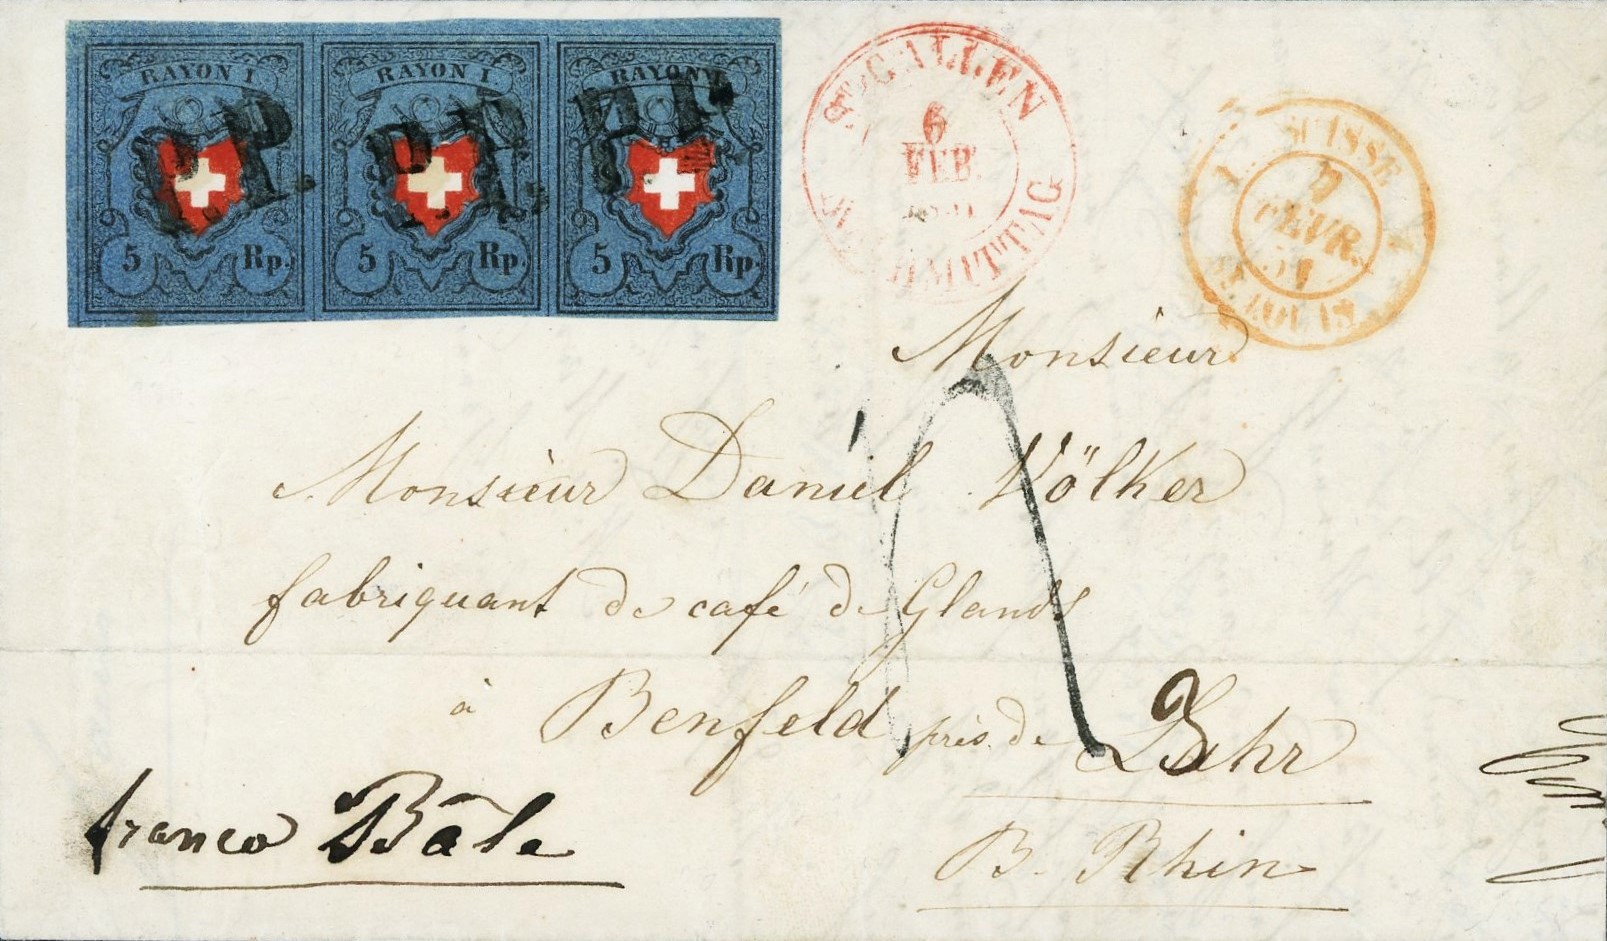 RAYON I RAYON I RAYON I
P.P. P.P. P.P.
5 Rp. 5 Rp. 5 Rp.
ST GALLEN
6
FEB.
NACHMITTAG
1. SUISSE
7
FEVR.
51
ST. LOUIS
Monsieur
Monsieur Daniel Völker
fabriquant de café de Glands
à Benfeld près de Lahr
B. Rhin
franco Bâle